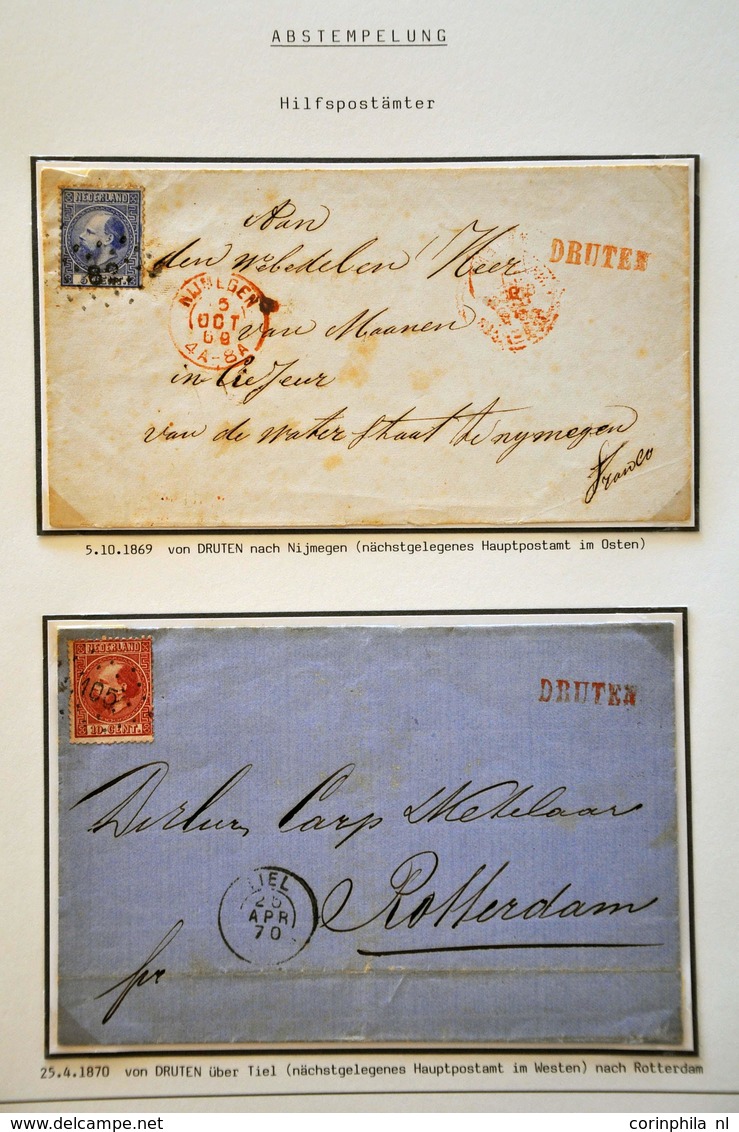 ABSTEMPELUNG
Hilfspostämter
NEDERLAND
5 CENT.
82
Aan
den Weledelen Heer
DRUTEN
NIJMEGEN
5
OCT
69
4A-8A
van Maanen
in
van de water Staat te nymegen
Franco
5.10.1869 von DRUTEN nach Nijmegen (nächstgelegenes Hauptpostamt im Osten)
NEDERLAND
105
10 CENT.
DRUTEN
Carp
Rotterdam
TIEL
25
APR
70
pr
25.4.1870 von DRUTEN über Tiel (nächstgelegenes Hauptpostamt im Westen) nach Rotterdam
corinphila nl